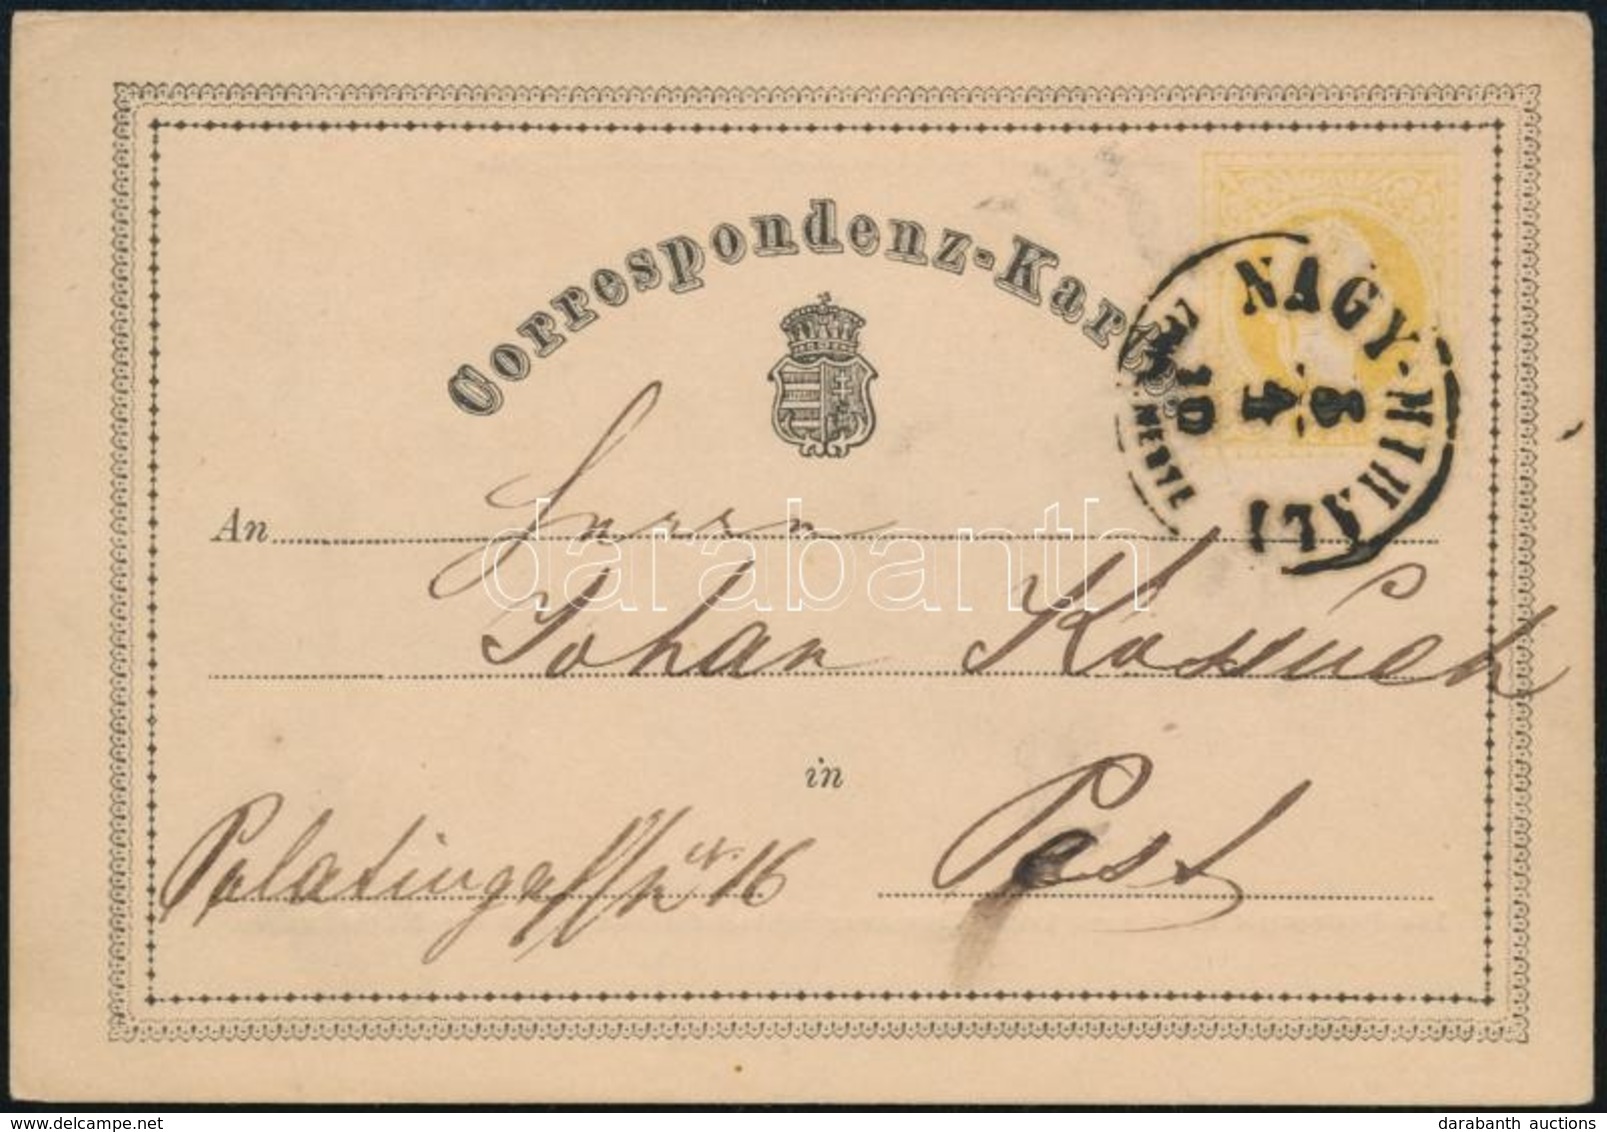 Correspondenz-Karte.
NAGY-MIHÁLY
8
4
10
An Herrn
Johan Kossuch
in
Palatingasse nr 16 Pest
darabanth
delcampe.net
darabanth auctions